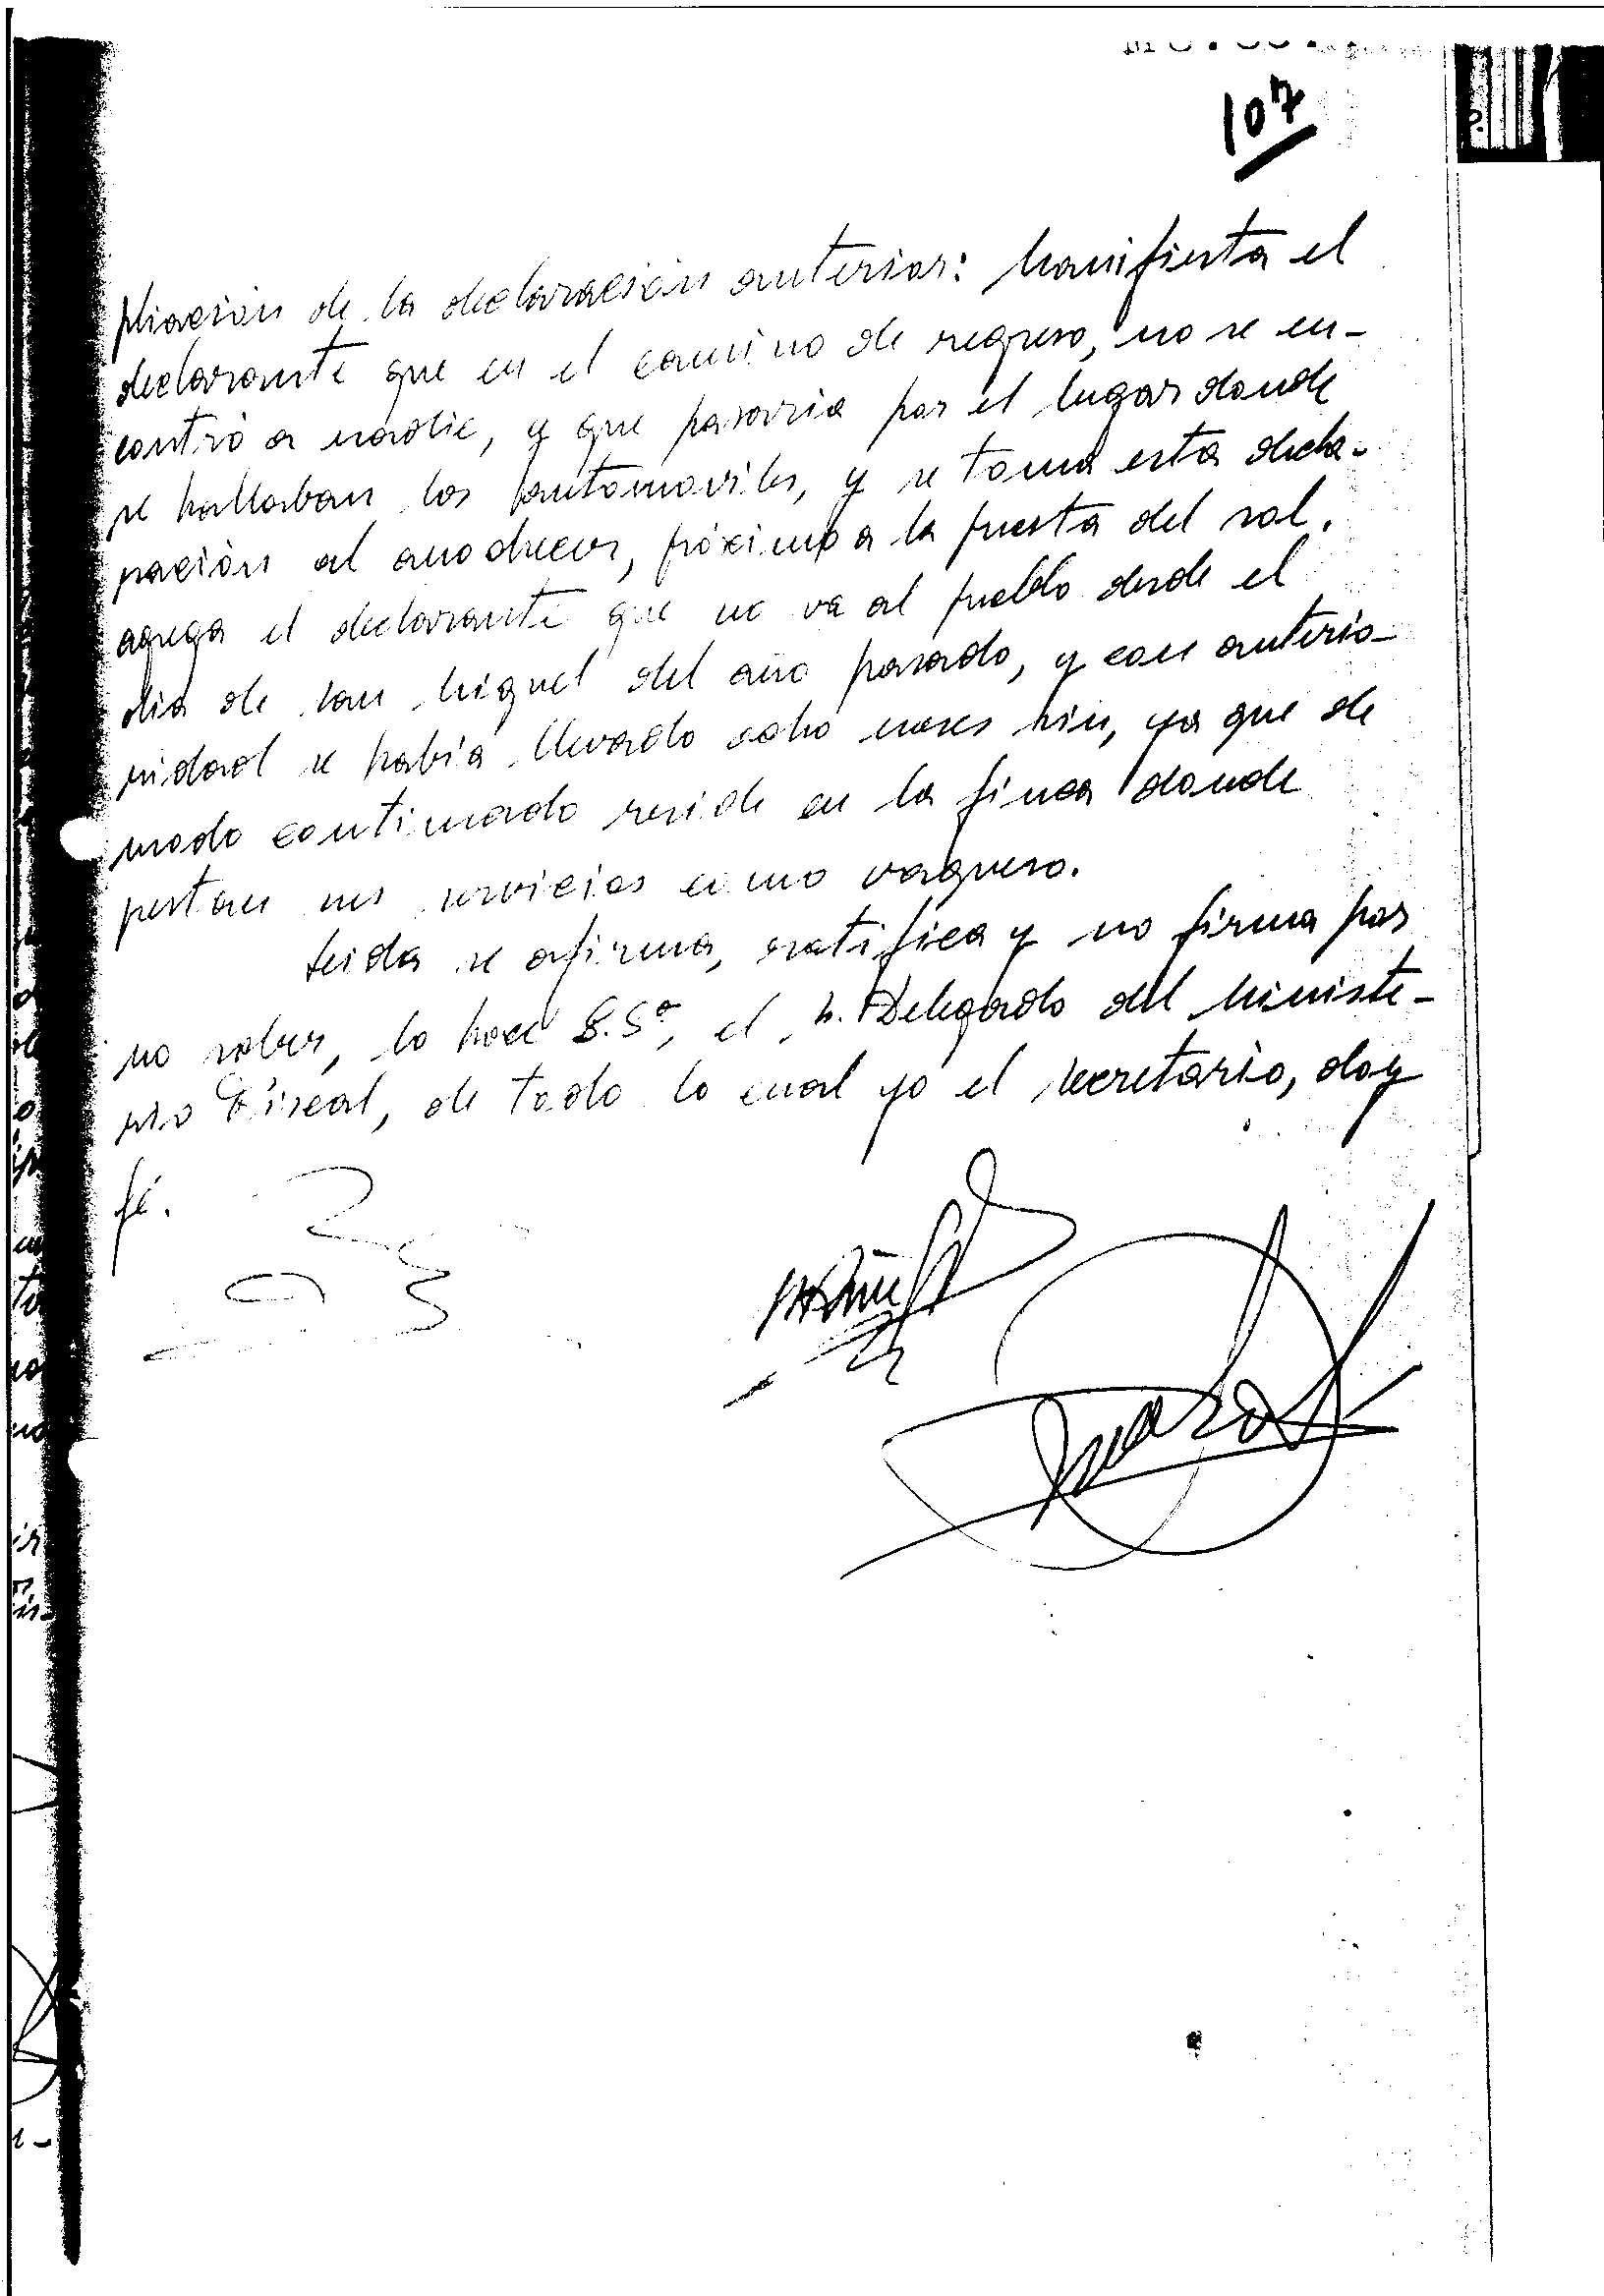 107
pliación de la declaración anterior: Manifiesta el
declarante que en el camino de regreso, no se en-
contró a nadie, y que pasaría por el lugar donde
se hallaban los automóviles, y se toma esta decla-
ración al anochecer, próximo a la puesta del sol.
agrega el declarante que no va al pueblo desde el
día de San Miguel del año pasado, y con anterio-
ridad se había llevado ocho meses sin, ya que de
modo continuado reside en la finca donde
pestan sus servicios como vaquero.
Leida se afirma, ratifica y no firma por
no saber, lo hace S.Sª, el Delegado del Ministe-
rio Fiscal, de todo lo cual yo el Secretario, doy
fé.